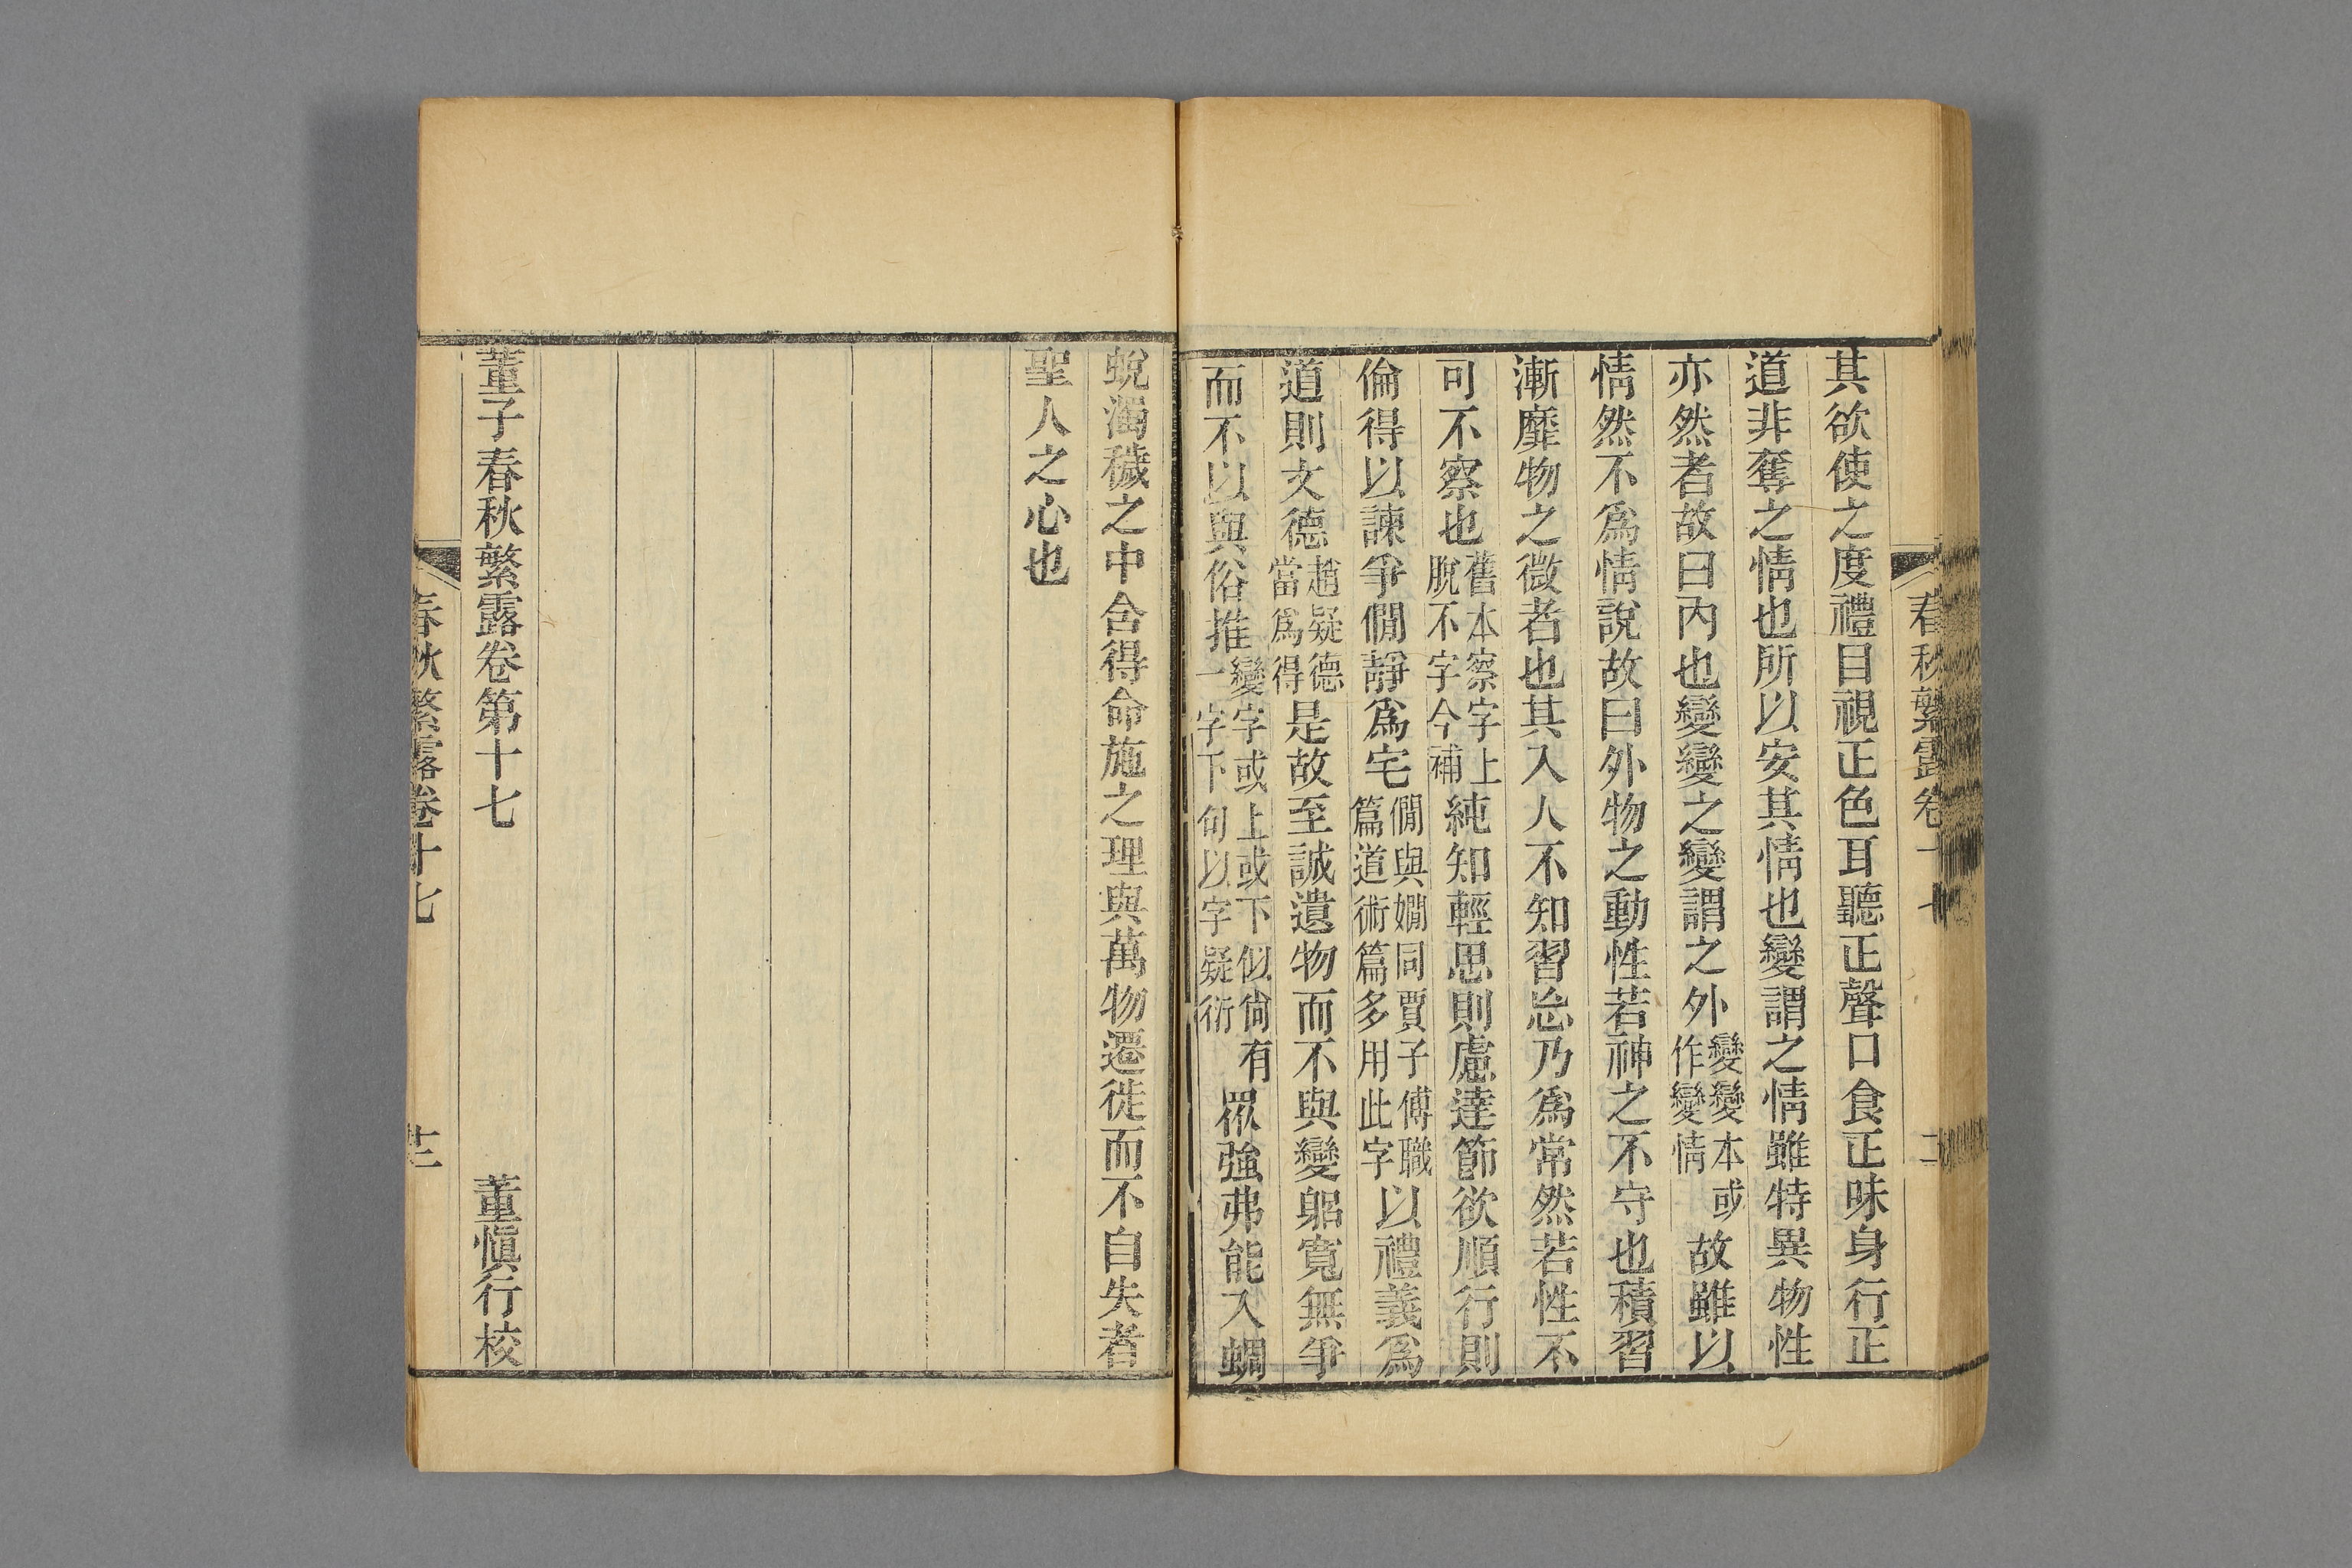 其欲使之度禮目視正色耳聽正聲口食正味身行正
道非奪之情也所以安其情也變謂之情雖特異物性
亦然者故曰內也變變之變謂之外變變本或作變情故雖以
情然不爲情說故曰外物之動性若神之不守也積習
漸靡物之微者也其入人不知習忘乃爲常然若性不
可不察也舊本察字上脫不字今補純知輕思則慮達節欲順行則
倫得以諫爭僩靜爲宅僩與嫺同賈子傅職篇道術篇多用此字以禮義爲
道則文德趙疑德當爲得是故至誠遺物而不與變躬寬無爭
而不以與俗推變字或上或下似尙有一字下句以字疑衍眾強弗能入蜩
春秋繁露卷十七
蛻濁穢之中含得命施之理與萬物遷徙而不自失者
聖人之心也
董子春秋繁露卷第十七 董愼行校
春秋繁露卷十七 十二